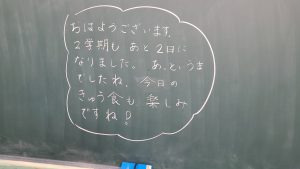 おはようございます。
2学期も あと2日に
なりました。 あっというま
でしたね。 今日の
きゅう食も 楽しみ
ですね!